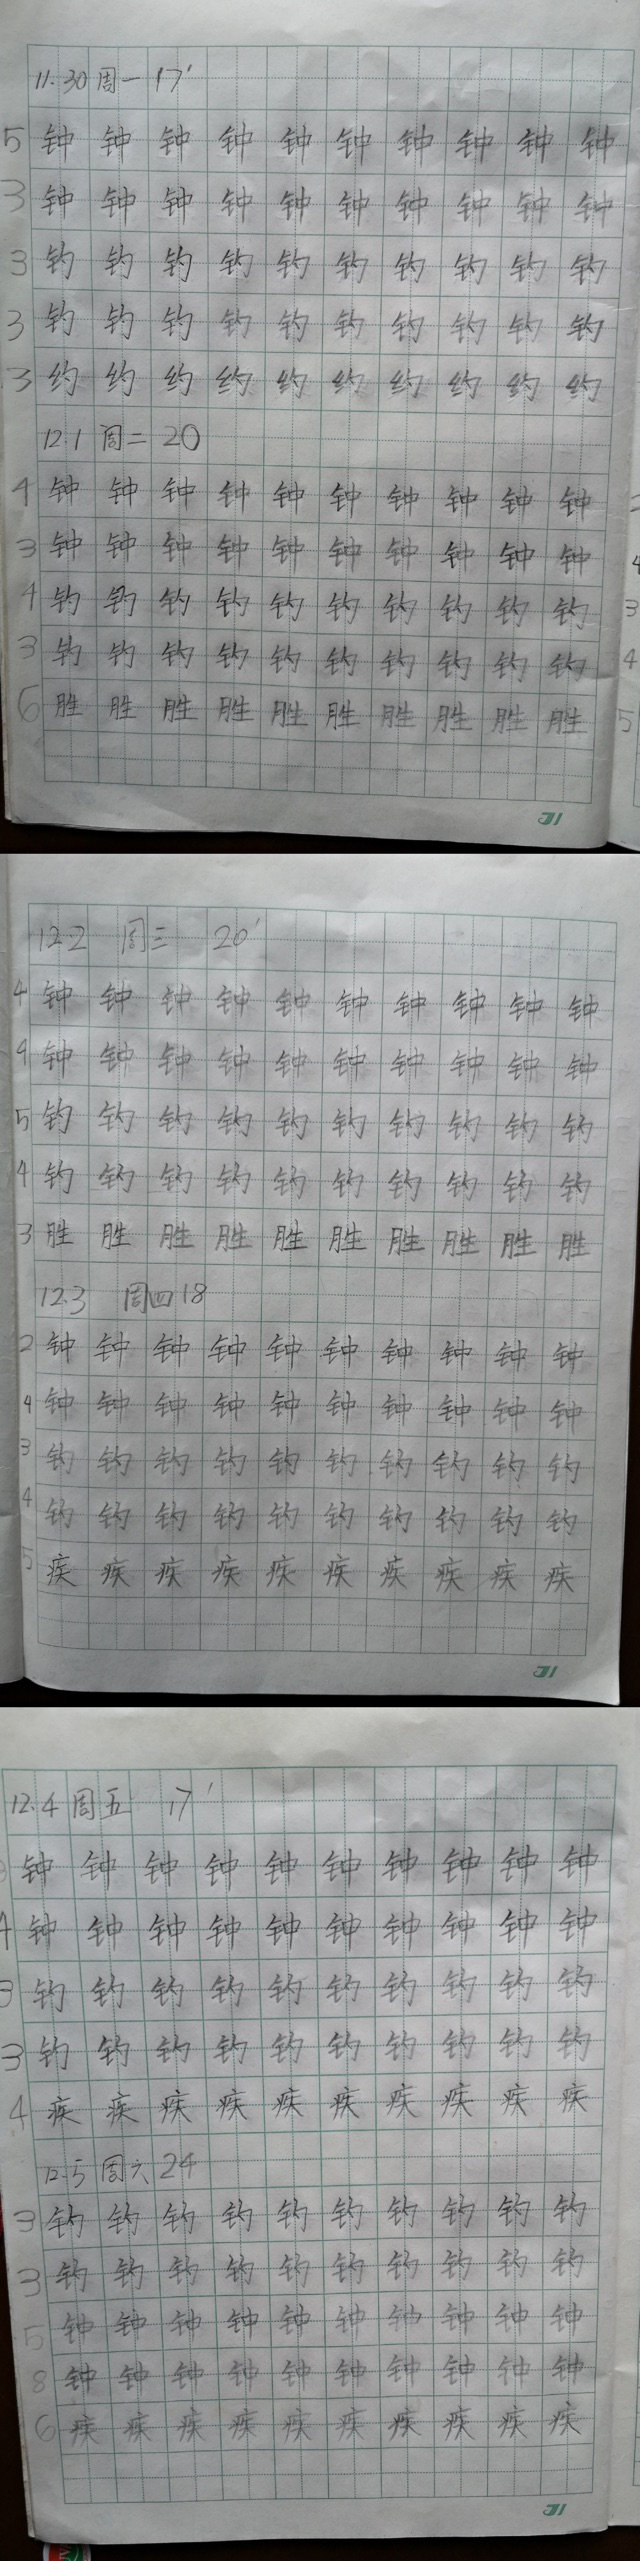 11.30 周一 17'
5 钟 钟 钟 钟 钟 钟 钟 钟 钟 钟
3 钟 钟 钟 钟 钟 钟 钟 钟 钟 钟
3 钓 钓 钓 钓 钓 钓 钓 钓 钓 钓
3 钓 钓 钓 钓 钓 钓 钓 钓 钓 钓
3 约 约 约 约 约 约 约 约 约 约
12.1 周二 20
4 钟 钟 钟 钟 钟 钟 钟 钟 钟 钟
3 钟 钟 钟 钟 钟 钟 钟 钟 钟 钟
4 钓 钓 钓 钓 钓 钓 钓 钓 钓 钓
3 钓 钓 钓 钓 钓 钓 钓 钓 钓 钓
6 胜 胜 胜 胜 胜 胜 胜 胜 胜 胜
4
3
4
5
12.2 周三 20'
4 钟 钟 钟 钟 钟 钟 钟 钟 钟 钟
4 钟 钟 钟 钟 钟 钟 钟 钟 钟 钟
5 钓 钓 钓 钓 钓 钓 钓 钓 钓 钓
4 钓 钓 钓 钓 钓 钓 钓 钓 钓 钓
3 胜 胜 胜 胜 胜 胜 胜 胜 胜 胜
12.3 周四 18
2 钟 钟 钟 钟 钟 钟 钟 钟 钟 钟
4 钟 钟 钟 钟 钟 钟 钟 钟 钟 钟
3 钓 钓 钓 钓 钓 钓 钓 钓 钓 钓
4 钓 钓 钓 钓 钓 钓 钓 钓 钓 钓
5 疾 疾 疾 疾 疾 疾 疾 疾 疾 疾
12.4 周五 17'
钟 钟 钟 钟 钟 钟 钟 钟 钟 钟
4 钟 钟 钟 钟 钟 钟 钟 钟 钟 钟
3 钓 钓 钓 钓 钓 钓 钓 钓 钓 钓
3 钓 钓 钓 钓 钓 钓 钓 钓 钓 钓
4 疾 疾 疾 疾 疾 疾 疾 疾 疾 疾
12.5 周六 24
3 钓 钓 钓 钓 钓 钓 钓 钓 钓 钓
3 钓 钓 钓 钓 钓 钓 钓 钓 钓 钓
5 钟 钟 钟 钟 钟 钟 钟 钟 钟 钟
8 钟 钟 钟 钟 钟 钟 钟 钟 钟 钟
6 疾 疾 疾 疾 疾 疾 疾 疾 疾 疾